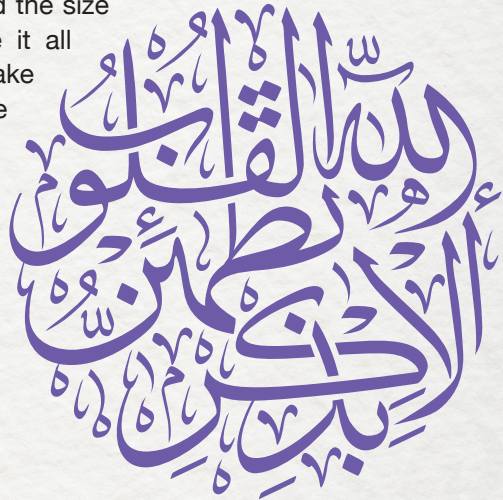 d the size
it all
ake
e
ألا بذكر الله تطمئن القلوب